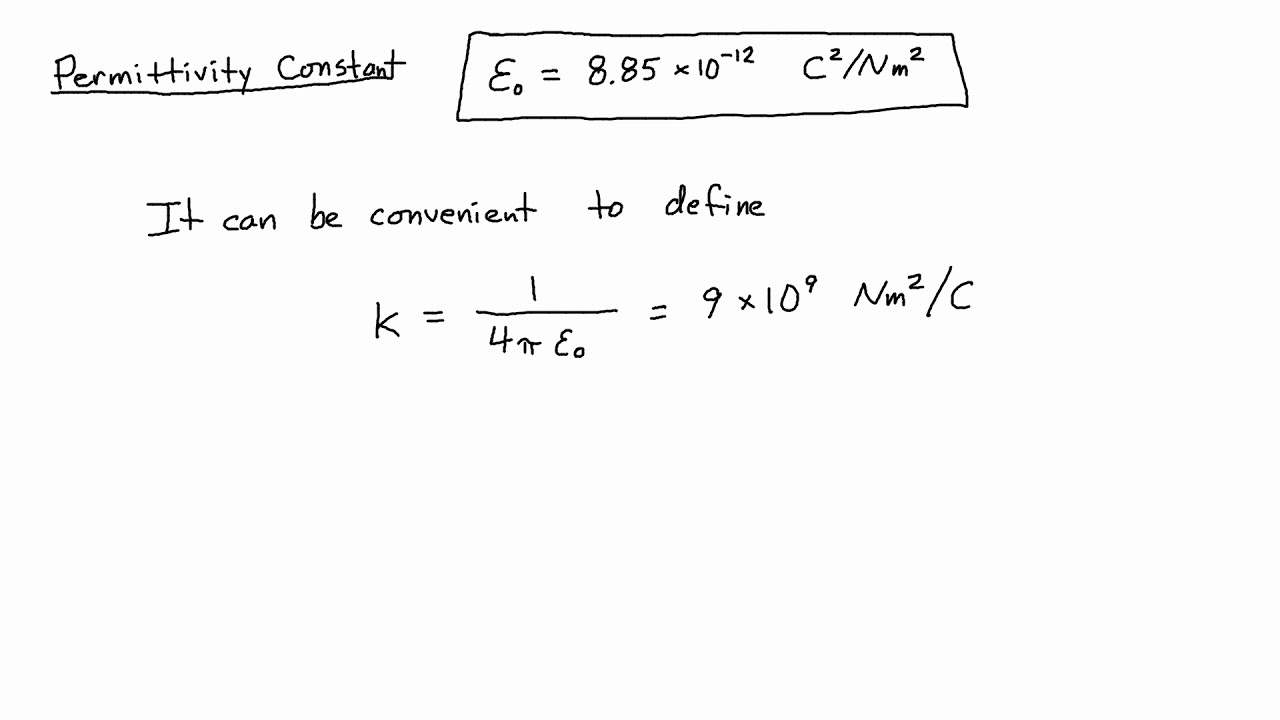 Permittivity Constant ε₀ = 8.85 × 10⁻¹² C²/Nm²
It can be convenient to define
k = 1/(4π ε₀) = 9 × 10⁹ Nm²/C